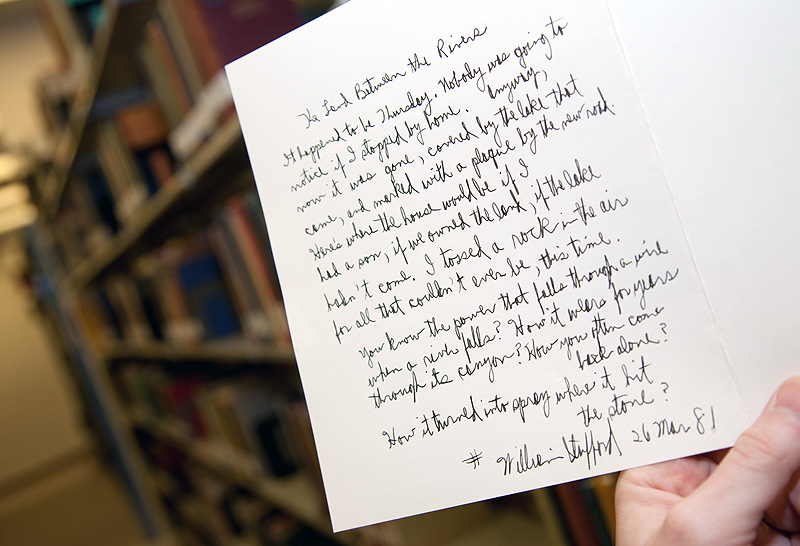 The Land Between the Rivers
It happened to be Thursday. Nobody was going to
notice if I stopped by home. Anyway,
now it was gone, covered by the lake that
came, and marked with a plaque by the new road.
Here's where the house would be if I
had a son, if we owned the land, if the lake
hadn't come. I tossed a rock in the air
for all that couldn't ever be, this time.
You know the power that falls through a wire
when a river falls? How it wears for years
through its canyon? How you often come
back alone?
How it turned into spray where it hit
the stone?
# William Stafford 26 Mar 81